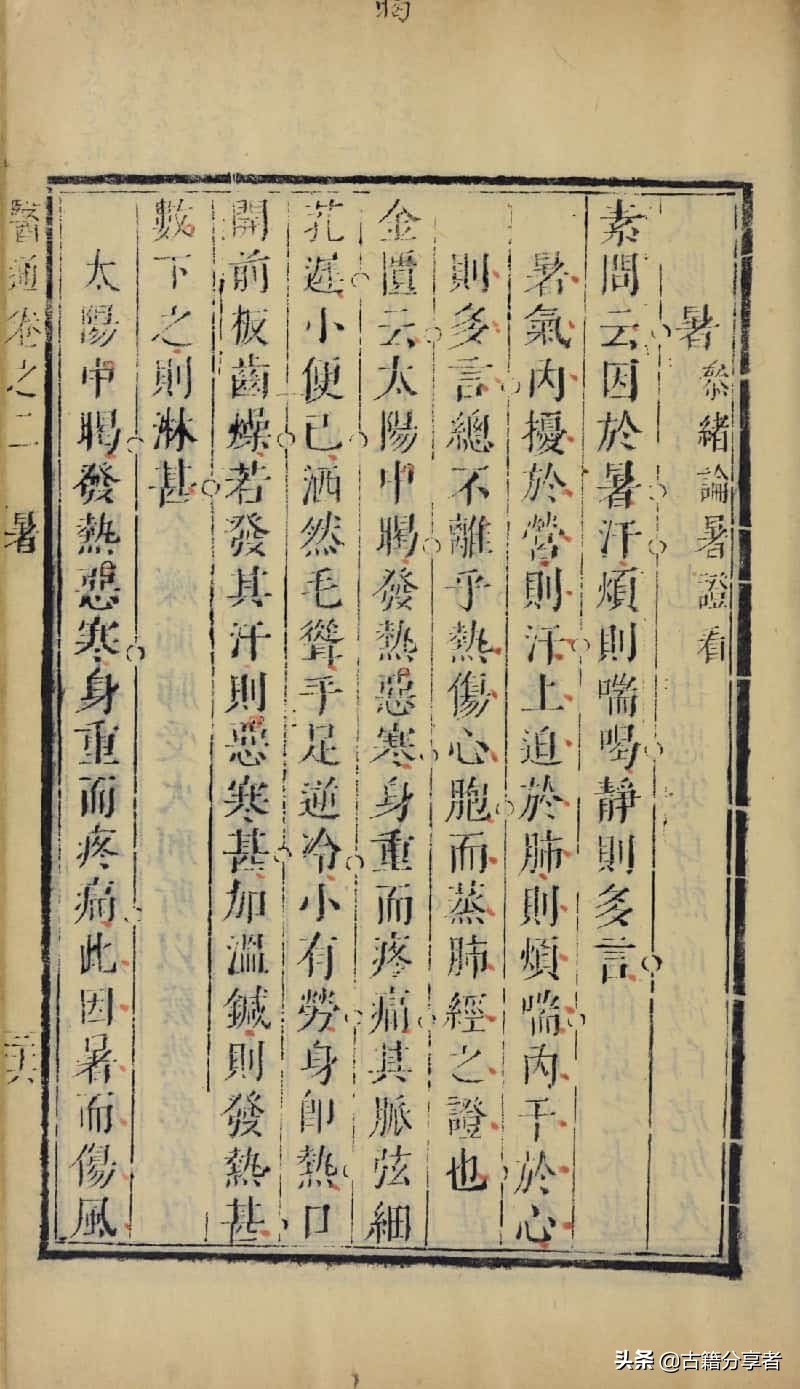 暍
暑 參緒論暑證看
素問云因於暑汗煩則喘喝靜則多言
暑氣內擾於營則汗上迫於肺則煩喘內干於心
則多言總不離乎熱傷心胞而蒸肺經之證也
金匱云太陽中暍發熱惡寒身重而疼痛其脈弦細
芤遲小便已洒然毛聳手足逆冷小有勞身即熱口
開前板齒燥若發其汗則惡寒甚加溫鍼則發熱甚
數下之則淋甚
太陽中暍發熱惡寒身重而疼痛此因暑而傷風
醫通卷之二 暑 二六
头条 @古籍分享者